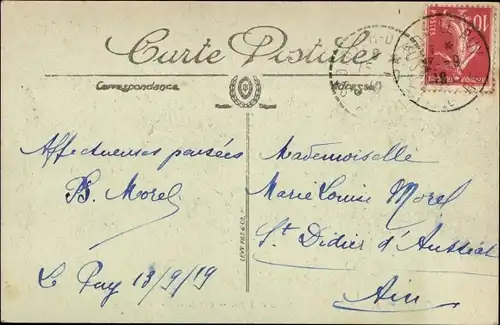 Carte Postale
Correspondance
Adresse
Affectueuses pensées
B. Morel
Le Puy 13/9/19
LEVY FILS & Cie
Mademoiselle
Marie Louise Morel
St Didier d'Aussiat
Ain
10